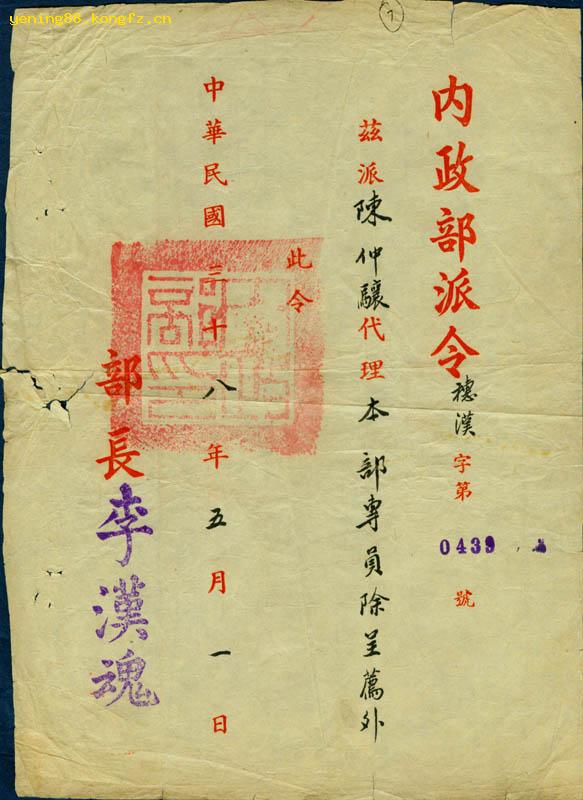 yening86.kongfz.cn
7
内政部派令
穗漢字第0439號
茲派陳仲驤代理本部專員除呈薦外
此令
中華民國三十八年五月一日
部長李漢魂